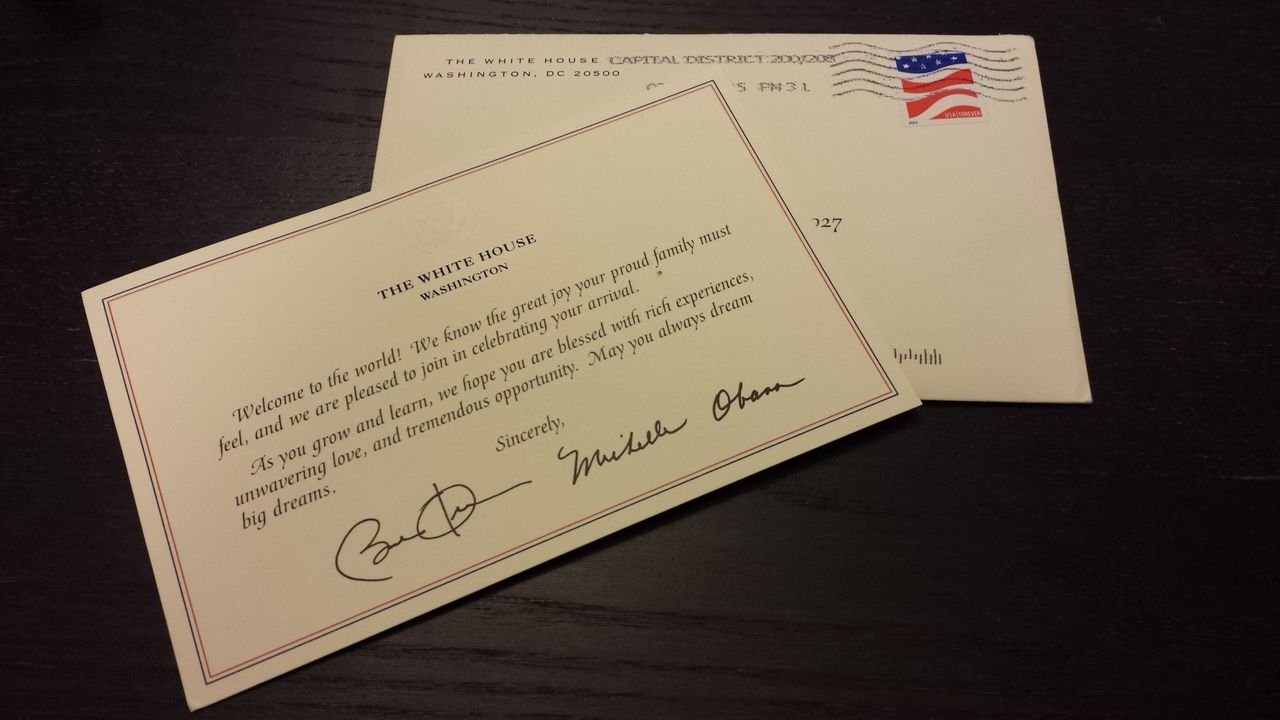 THE WHITE HOUSE
WASHINGTON, DC 20500
CAPITAL DISTRICT 200/208
PM 3 L
USA FOREVER
2014
027
THE WHITE HOUSE
WASHINGTON
Welcome to the world! We know the great joy your proud family must
feel, and we are pleased to join in celebrating your arrival.
As you grow and learn, we hope you are blessed with rich experiences,
unwavering love, and tremendous opportunity. May you always dream
big dreams.
Sincerely,
Michelle Obama